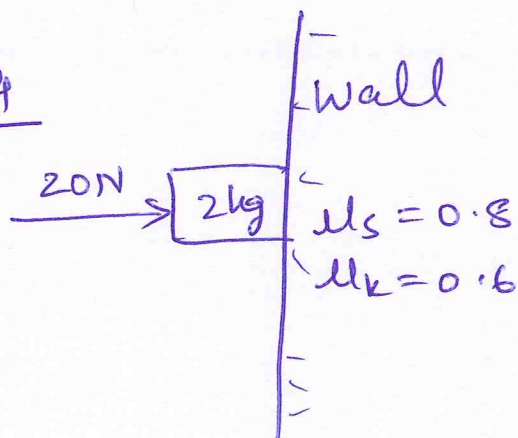 Wall
20N
2kg
μs = 0.8
μk = 0.6